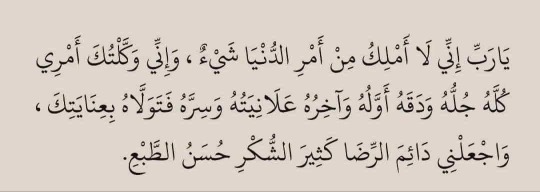 يَارَبِّ إِنِّي لَا أَمْلِكُ مِنْ أَمْرِ الدُّنْيَا شَيْءٌ ، وَإِنِّي وَكَّلْتُكَ أَمْرِي
كُلَّهُ جُلُّهُ وَدَقَهُ أَوَّلُهُ وَآخِرُهُ عَلَانِيَتُهُ وَسِرَّهُ فَتَوَلَّاهُ بِعِنَايَتِكَ ،
وَاجْعَلْنِي دَائِمَ الرِّضَا كَثِيرَ الشُّكْرِ حُسَنُ الطَّبْعِ.